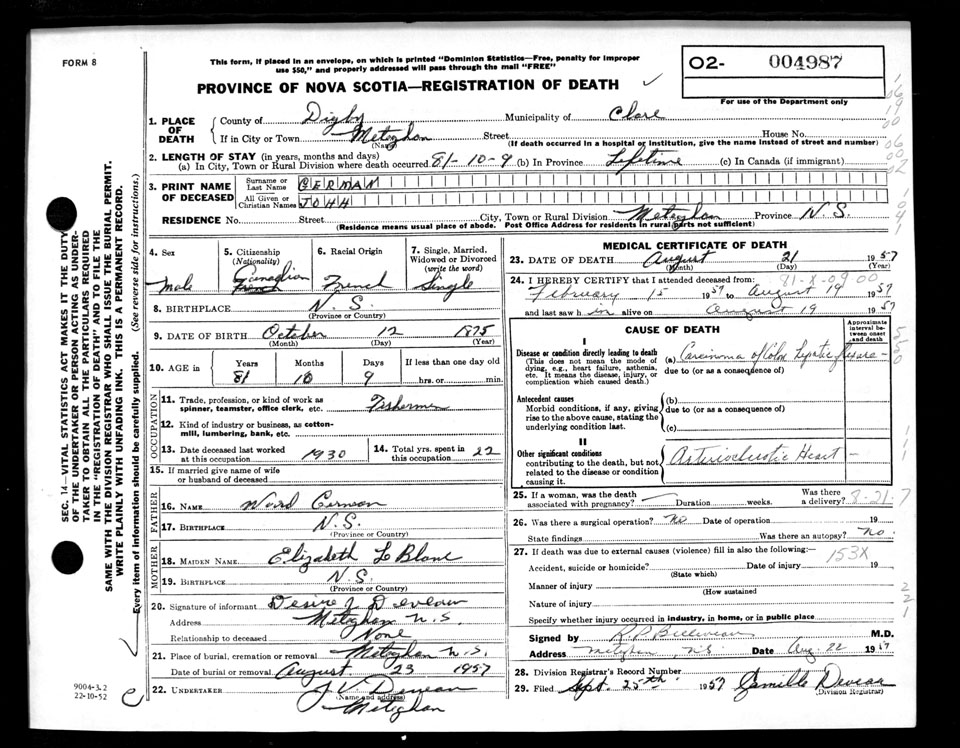 FORM 8
This form, if placed in an envelope, on which is printed "Dominion Statistics—Free, penalty for improper
use $50," and properly addressed will pass through the mail "FREE"
PROVINCE OF NOVA SCOTIA—REGISTRATION OF DEATH
O2- 004987
For use of the Department only
1. PLACE OF DEATH
County of Digby Municipality of Clare
If in City or Town Meteghan Street House No.
(Name) (If death occurred in a hospital or institution, give the name instead of street and number)
2. LENGTH OF STAY (in years, months and days)
(a) In City, Town or Rural Division where death occurred 81-10-9 (b) In Province Lifetime (c) In Canada (if immigrant)
3. PRINT NAME OF DECEASED
Surname or Last Name GERMAN
All Given or Christian Names JOHH
RESIDENCE No. Street City, Town or Rural Division Meteghan Province N.S.
(Residence means usual place of abode. Post Office Address for residents in rural parts not sufficient)
4. Sex Male
5. Citizenship (Nationality) Canadian
6. Racial Origin French
7. Single, Married, Widowed or Divorced (write the word) Single
8. BIRTHPLACE N.S.
(Province or Country)
9. DATE OF BIRTH October 12 1875
(Month) (Day) (Year)
10. AGE in Years Months Days If less than one day old
81 10 9 hrs. or min.
OCCUPATION
11. Trade, profession, or kind of work as
spinner, teamster, office clerk, etc.
12. Kind of industry or business, as cotton-
mill, lumbering, bank, etc.
13. Date deceased last worked
at this occupation 1930
14. Total yrs. spent in
this occupation 22
15. If married give name of wife
or husband of deceased
FATHER
16. NAME
17. BIRTHPLACE N.S.
(Province or Country)
MOTHER
18. MAIDEN NAME Elizabeth Le Blanc
19. BIRTHPLACE N.S.
(Province or Country)
20. Signature of informant Desire J. Deveau
Address Meteghan N.S.
Relationship to deceased None
21. Place of burial, cremation or removal Meteghan N.S.
Date of burial or removal August 23 1957
22. UNDERTAKER J V Deveau
(Name and address)
Meteghan
MEDICAL CERTIFICATE OF DEATH
23. DATE OF DEATH August 21 1957
(Month) (Day) (Year)
24. I HEREBY CERTIFY that I attended deceased from:
February 15 1957 to August 19 1957
and last saw him alive on August 19 1957
CAUSE OF DEATH
Approximate interval between onset and death
I
Disease or condition directly leading to death
(This does not mean the mode of
dying, e.g., heart failure, asthenia,
etc. It means the disease, injury, or
complication which caused death.)
(a) Carcinoma of Colon
due to (or as a consequence of)
Antecedent causes
Morbid conditions, if any, giving
rise to the above cause, stating the
underlying condition last.
(b)
due to (or as a consequence of)
(c)
II
Other significant conditions
contributing to the death, but not
related to the disease or condition
causing it.
Heart -
25. If a woman, was the death
associated with pregnancy? Duration weeks. Was there a delivery?
8-21-7
26. Was there a surgical operation? No Date of operation 19
State findings Was there an autopsy? No.
27. If death was due to external causes (violence) fill in also the following:—
153X
Accident, suicide or homicide? Date of injury 19
(State which)
Manner of injury
(How sustained
Nature of injury
Specify whether injury occurred in industry, in home, or in public place
Signed by M.D.
Address Meteghan N.S. Date Aug. 22 19
28. Division Registrar's Record Number
29. Filed Sept. 25th 1957 Deveau
(Division Registrar)
SEC. 14—VITAL STATISTICS ACT MAKES IT THE DUTY
OF THE UNDERTAKER OR PERSON ACTING AS UNDER-
TAKER TO OBTAIN ALL THE PARTICULARS REQUIRED
IN THE "REGISTRATION OF DEATH" AND TO FILE THE
SAME WITH THE DIVISION REGISTRAR WHO SHALL ISSUE THE BURIAL PERMIT.
WRITE PLAINLY WITH UNFADING INK. THIS IS A PERMANENT RECORD.
Every item of information should be carefully supplied. (See reverse side for instructions.)
9004-3.2
22-10-52